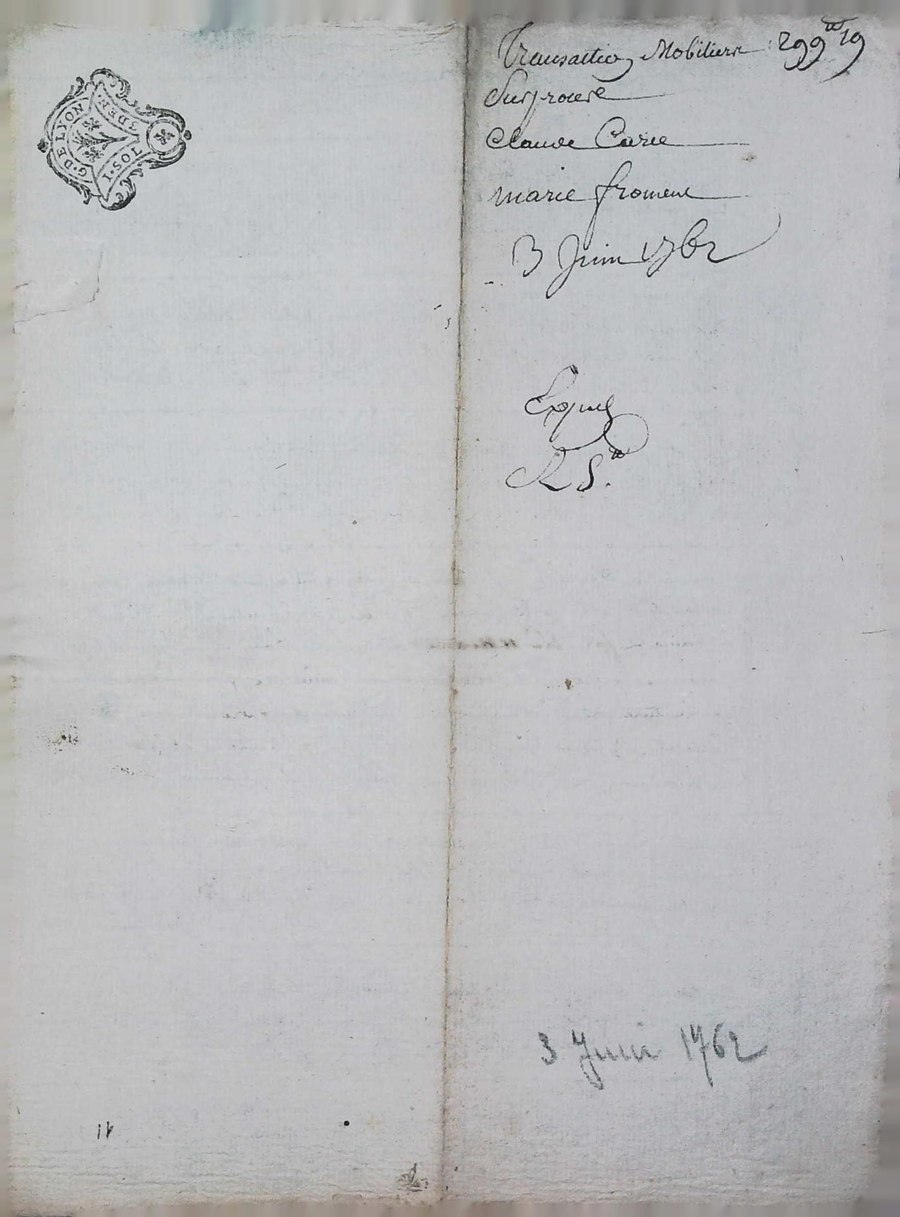 G. DE LYON
1. SOL. 3 DEN.
Transaction Mobiliere : 299 tt 19
Sur procès
Claude Carre
marie froment
3 Juin 1762
Expié
R 8. tt
3 Juin 1762